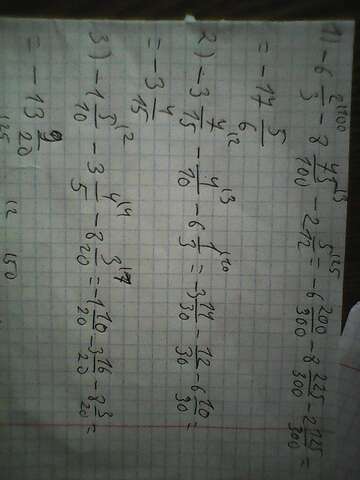 1) -6 2/3 ^(100 - 8 45/100 ^(3 - 2 5/12 ^(25 = -6 200/300 - 8 225/300 - 2 125/300 =
= -17 5/6
2) -3 7/15 ^(2 - 4/10 ^(3 - 6 1/3 ^(10 = -3 14/30 - 12/30 - 6 10/30 =
= -3 4/15
3) -1 5/10 ^(2 - 3 4/5 ^(4 - 8 3/20 = -1 10/20 - 3 16/20 - 8 3/20 =
= -13 9/20
125 12 150